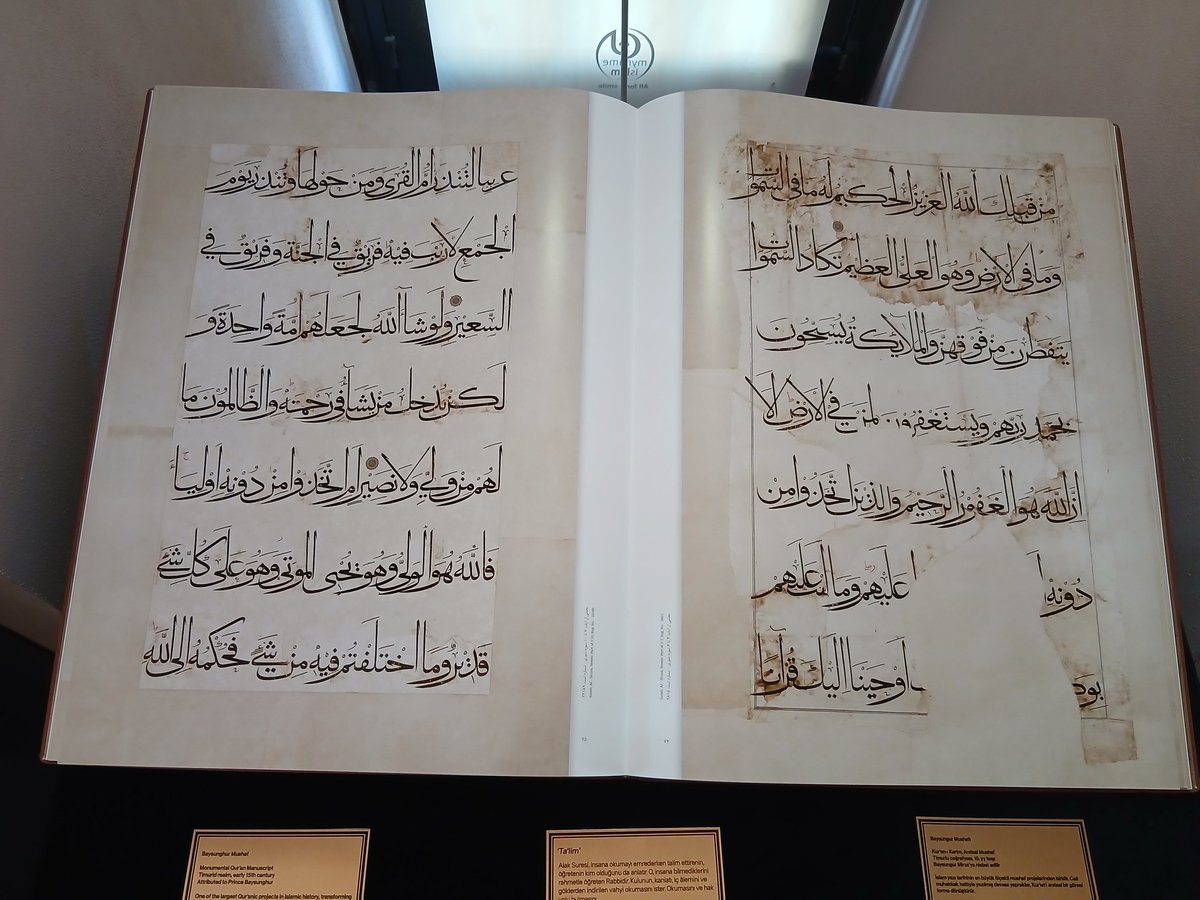 my name
islam
من قبلك الله العزيز الحكيم له ما في السموات
وما في الارض وهو العلي العظيم تكاد السموات
يتفطرن من فوقهن والملايكة يسبحون
بحمد ربهم ويستغفرون لمن في الارض الا
ان الله هو الغفور الرحيم والذين اتخذوا من
دونه عليهم وما انت عليهم
اوحينا اليك قرآنا
عربيا لتنذر ام القرى ومن حولها وتنذر يوم
الجمع لا ريب فيه فريق في الجنة وفريق في
السعير ولو شاء الله لجعلهم امة واحدة و
لكن يدخل من يشاء في رحمته والظالمون ما
لهم من ولي ولا نصير ام اتخذوا من دونه اولياء
فالله هو الولي وهو يحيي الموتى وهو على كل شيء
قدير وما اختلفتم فيه من شيء فحكمه الى الله
٧٤
٧٥
Baysunghur Mushaf
Monumental Qur'an Manuscript
Timurid realm, early 15th century
Attributed to Prince Baysunghur
One of the largest Qur'anic projects in Islamic history, transforming
'Ta'lim'
Alak Suresi, insana okumayı emrederken talim ettirenin,
öğretenin kim olduğunu da anlatır. O, insana bilmediklerini
rahmetle öğreten Rabbidir. Kulunun, kainatı, iç âlemini ve
göklerden indirilen vahyi okumasını ister. Okumasını ve hak
yolu bulmasını
Baysungur Mushafı
Kur'an-ı Kerim, Anıtsal Mushaf
Timurlu coğrafyası, 15. yy başı
Baysungur Mirza'ya nisbet edilir
İslam yazı tarihinin en büyük ölçekli mushaf projelerinden biridir. Celî
muhakkak hattıyla yazılmış devasa yapraklar, Kur'an'ı anıtsal bir görsel
forma dönüştürür.